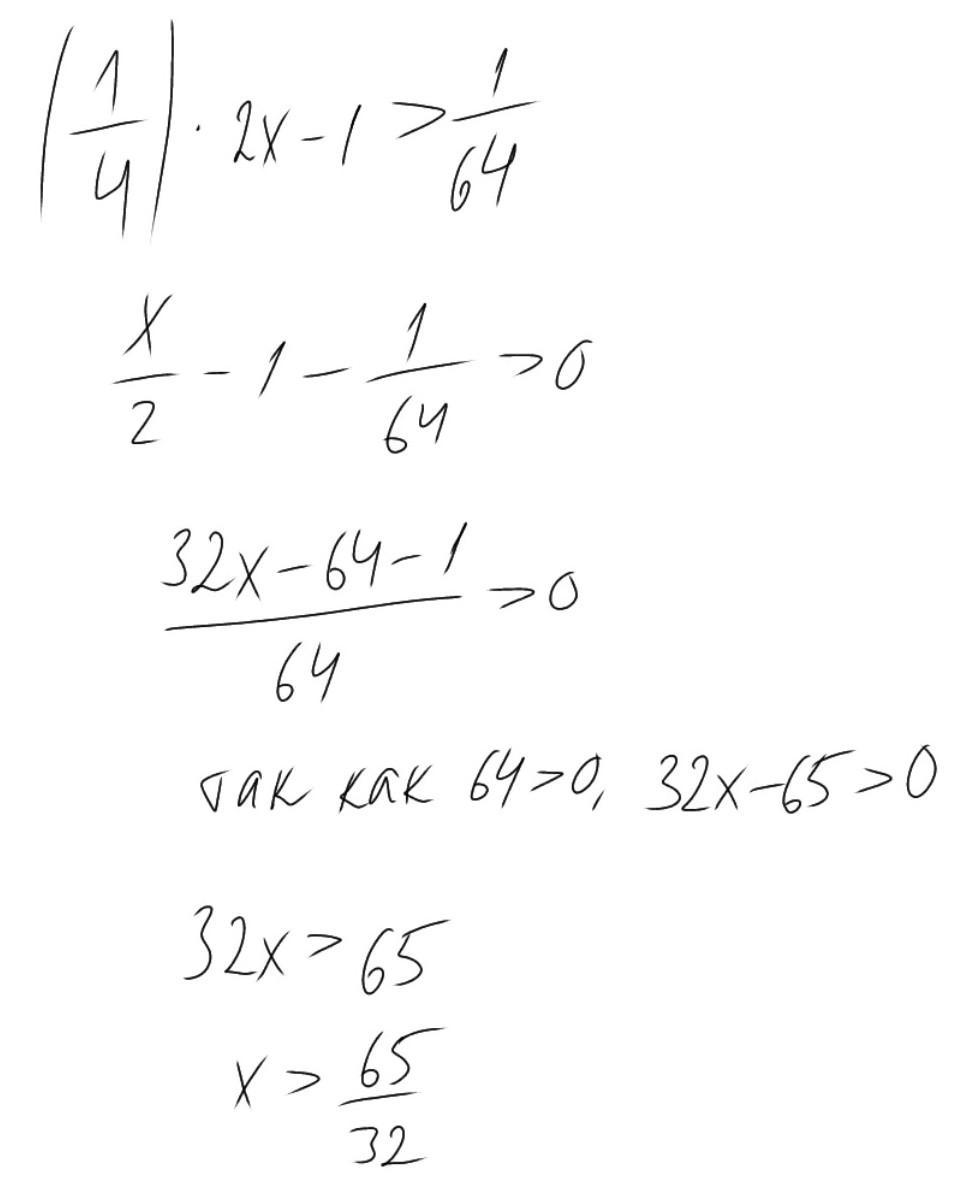 (1/4) · 2x - 1 > 1/64
x/2 - 1 - 1/64 > 0
(32x - 64 - 1)/64 > 0
так как 64 > 0, 32x - 65 > 0
32x > 65
x > 65/32